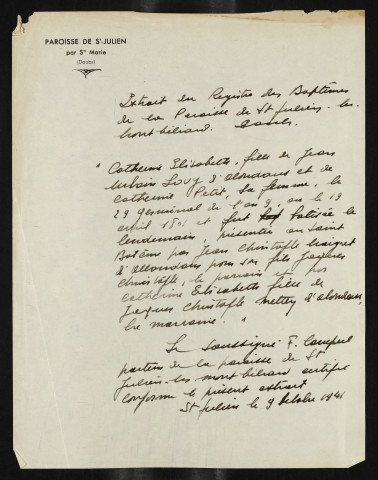 PAROISSE DE St-JULIEN
par Ste Marie
(Doubs)
Extrait du Registre des Baptêmes
de la Paroisse de St Julien-les-
Montbéliard. Doubs.
" Catherine Elisabeth, fille de Jean
Urbain Louy d'Allondans et de
Catherine Petit sa femme, le
23 germinal de l'an 9, ou le 13
avril 1801 et fut batisée le
lendemain, présentée au Saint
Batême par Jean Christophe
d'Allondans pour son fils Jacques
Christophe, le parrain et par
Catherine Elisabeth fille de
Jacques Christophe Mettey d'Alondans,
la marraine. "
Le soussigné F.
pasteur de la paroisse de St
Julien-les-Montbéliard certifie
conforme le présent extrait
St Julien le 9 Octobre 1941